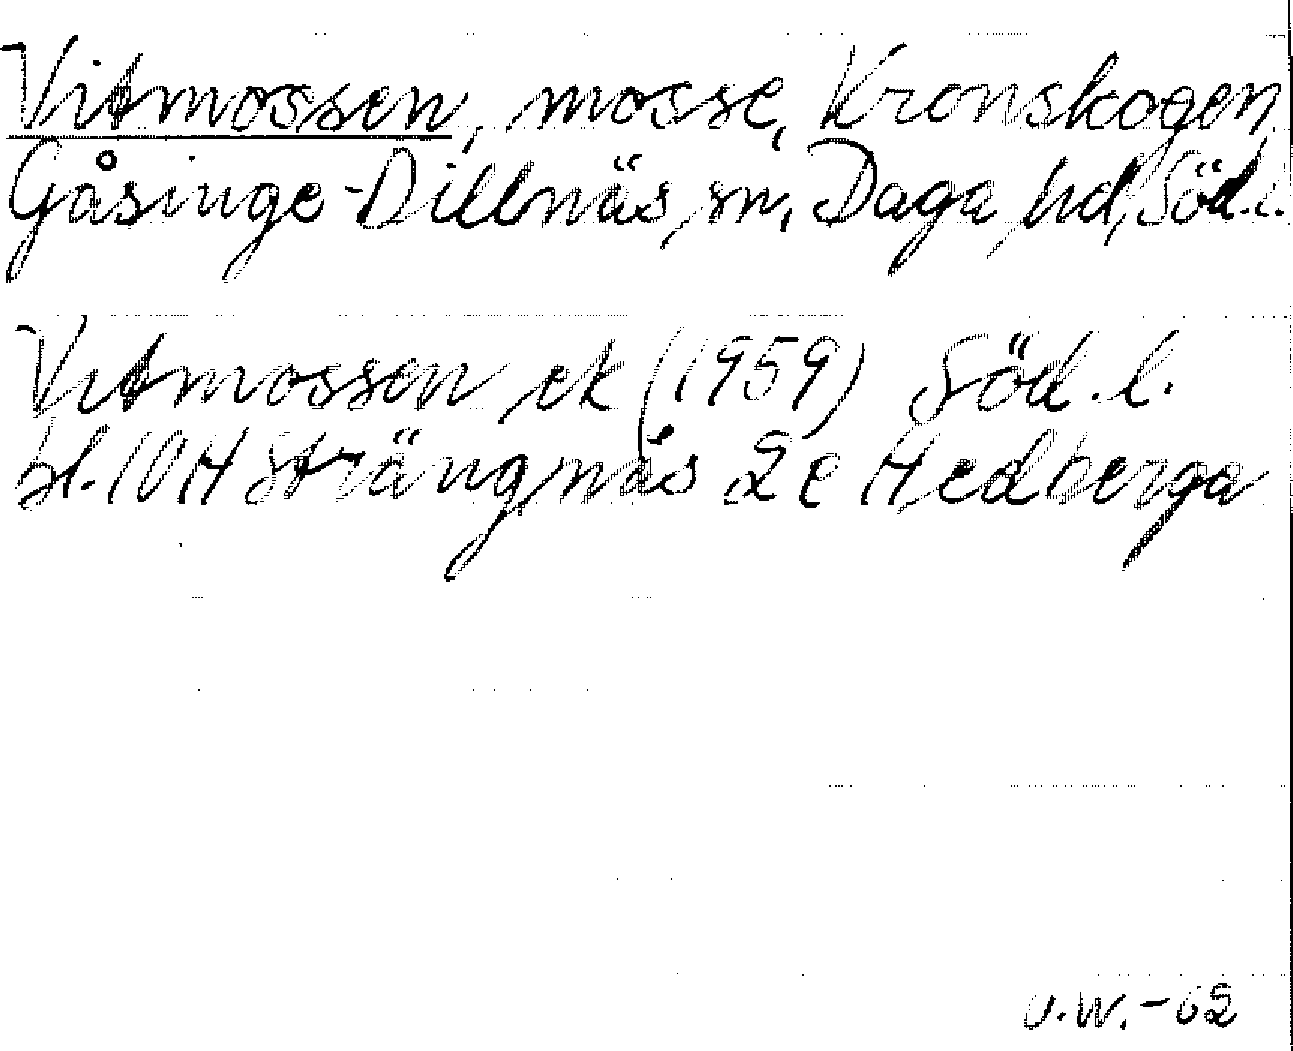 Vitmossen, mosse, Kronskogen
Gåsinge-Dillnäs sn, Daga hd, Söd.l.
Vitmossen ek (1959) Söd.l.
bl. 10H Strängnäs 2e Hedberga
U.W.-62